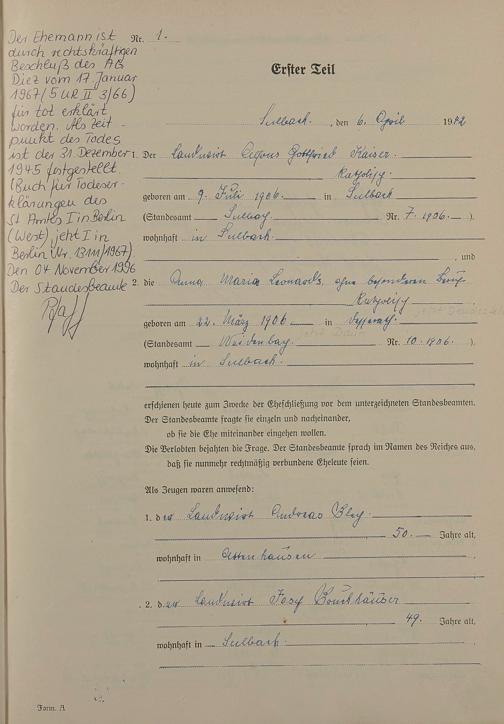 Der Ehemann ist
durch rechtskräftigen
Beschluß des AG
Diez vom 17. Januar
1967 (5 UR II 3/66)
für tot erklärt
worden. Als Zeit-
punkt des Todes
ist der 31. Dezember
1945 festgestellt.
(Buch für Todeser-
klärungen des
St Amtes I in Berlin
(West) jetzt I in
Berlin Nr. 13111/1967)
Den 04 November 1996
Der Standesbeamte
Nr. 1.
Erster Teil
Sulbach, den 6. April 1942
1. Der Landwirt Gottfried Kaiser
Katholisch
geboren am 9. Juli 1906 in Sulbach
(Standesamt Nr. 7. 1906.)
wohnhaft in Sulbach
, und
2. die Anna Maria Leonards, ohne besonderen Beruf
Katholisch
geboren am 22. März 1906 in
(Standesamt Weidenbach Nr. 10. 1906.)
wohnhaft in Sulbach
erschienen heute zum Zwecke der Eheschließung vor dem unterzeichneten Standesbeamten.
Der Standesbeamte fragte sie einzeln und nacheinander,
ob sie die Ehe miteinander eingehen wollen.
Die Verlobten bejahten die Frage. Der Standesbeamte sprach im Namen des Reiches aus,
daß sie nunmehr rechtmäßig verbundene Eheleute seien.
Als Zeugen waren anwesend:
1. der Landwirt Andreas
50. Jahre alt,
wohnhaft in Attenhausen
2. der Landwirt Josef
49. Jahre alt,
wohnhaft in Sulbach
Form. A